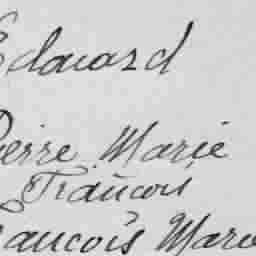 Edouard
Pierre Marie
François
François Marie